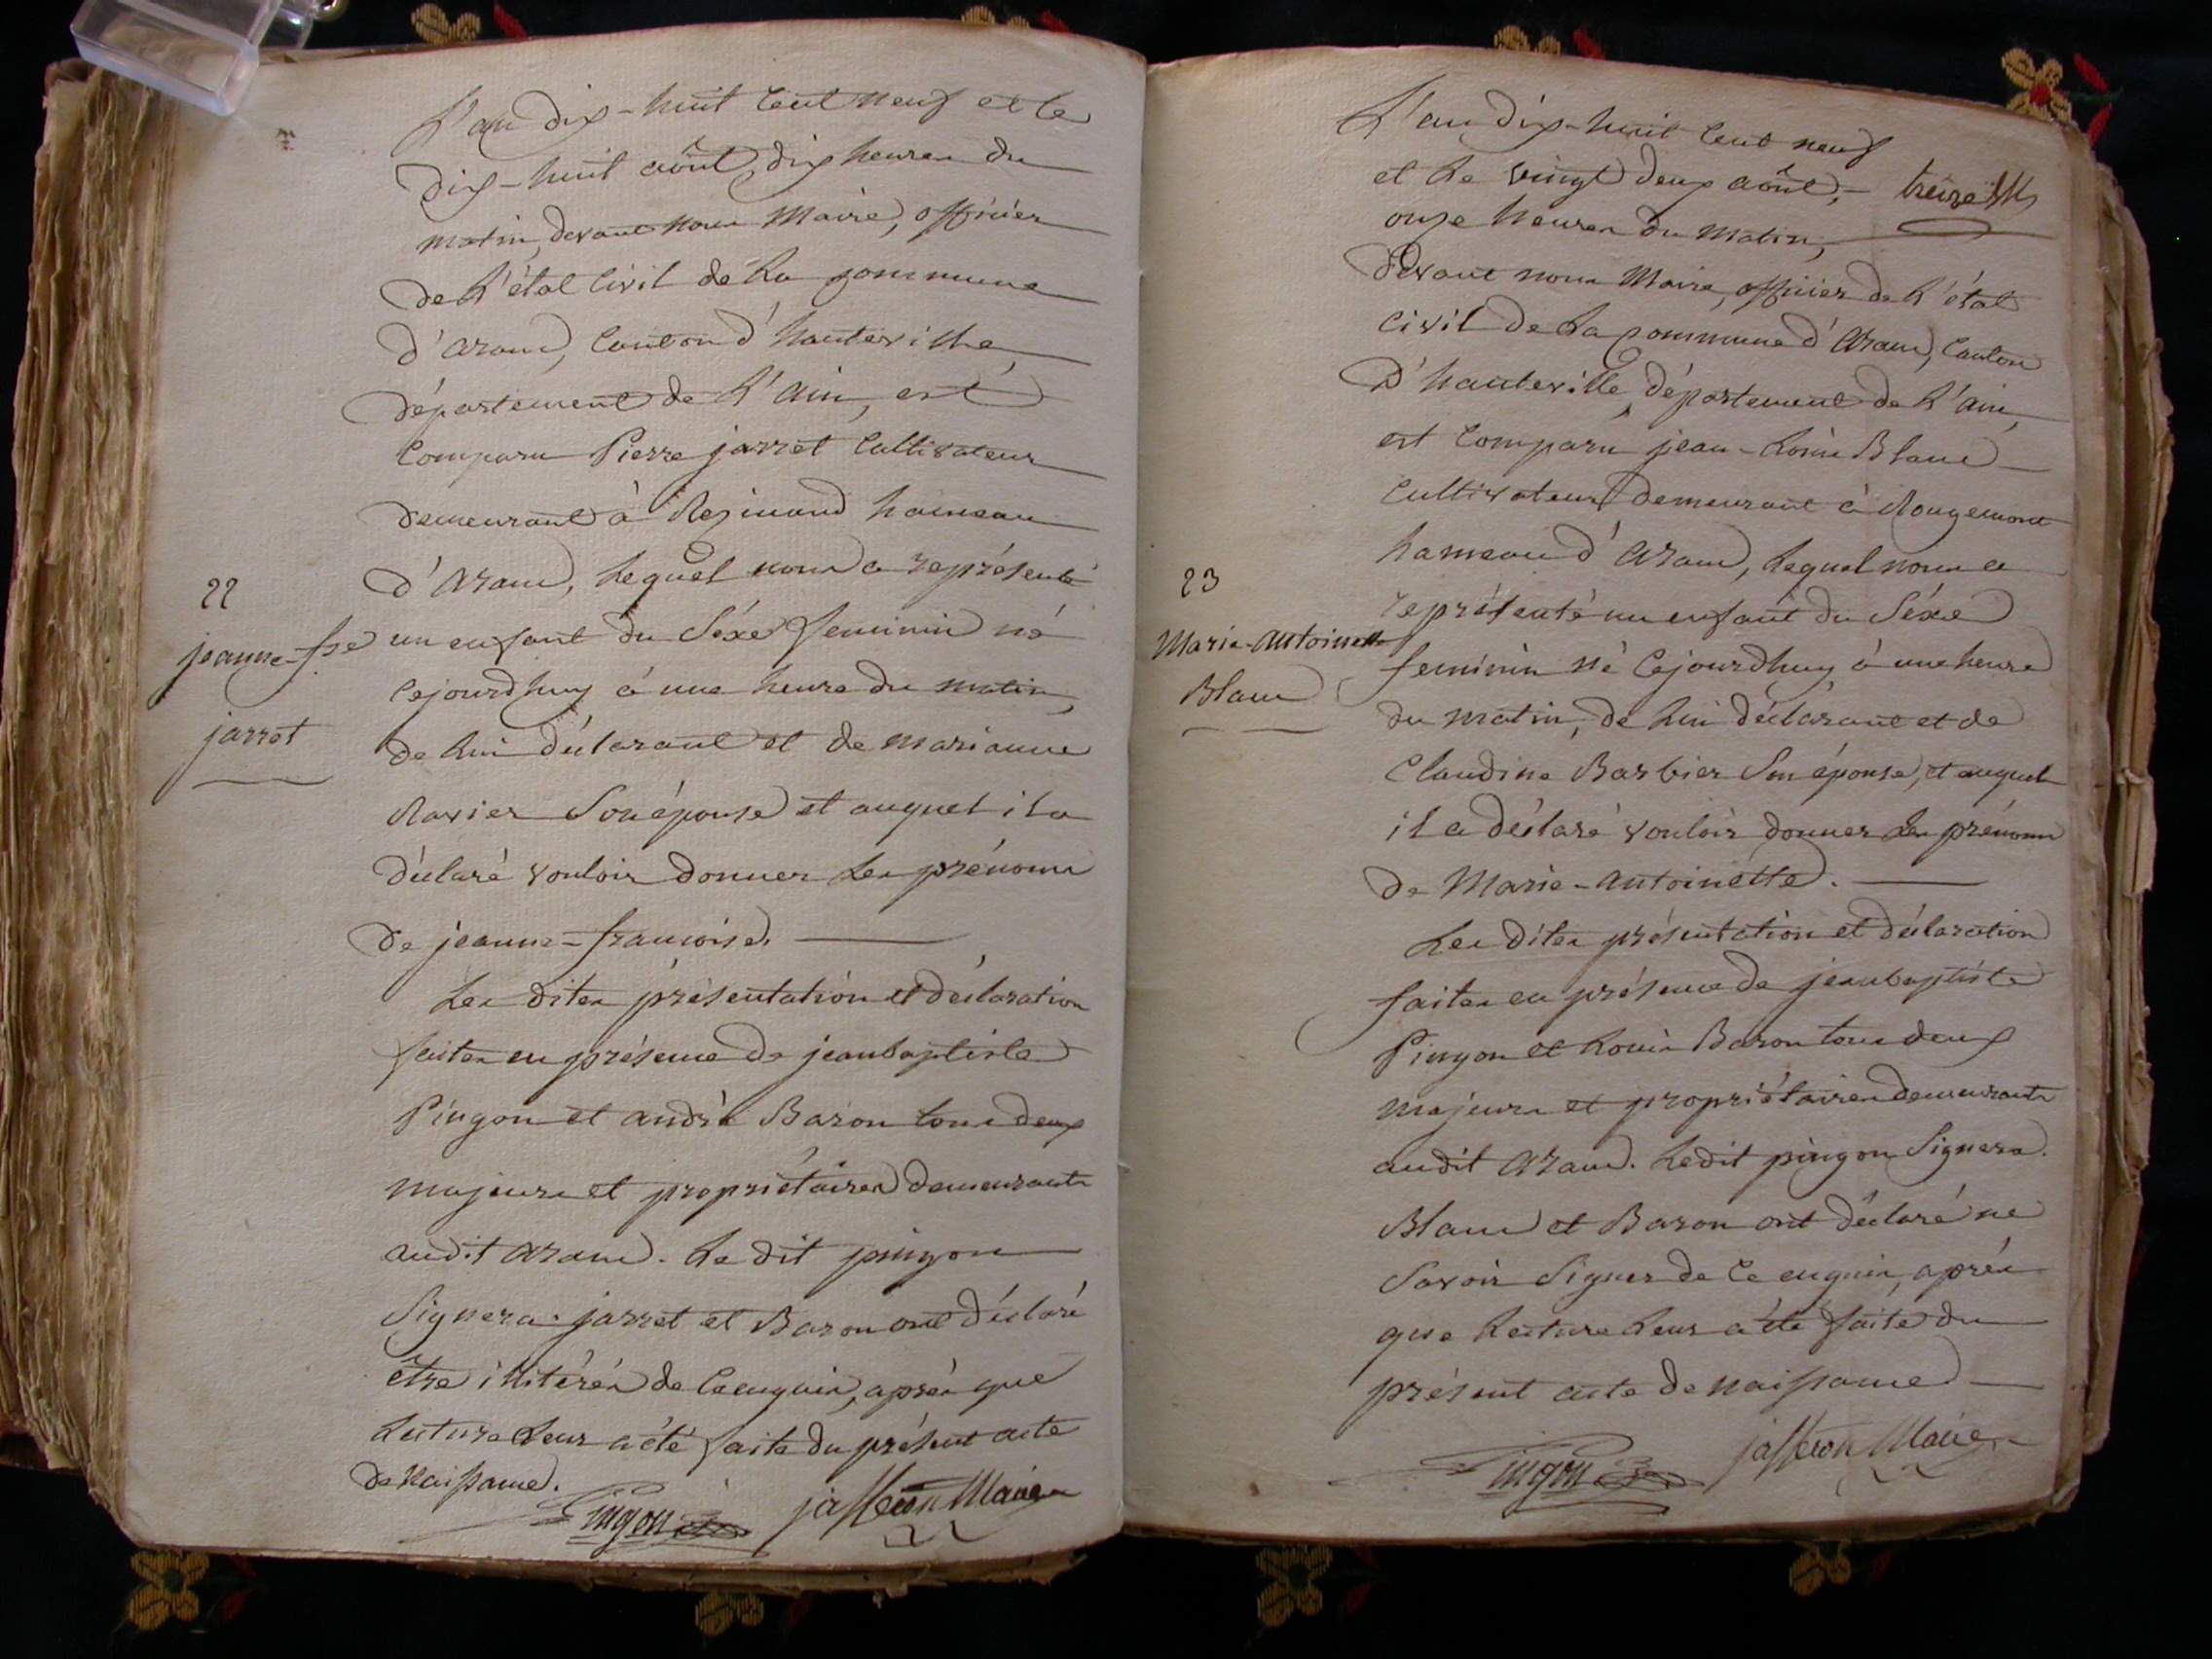 L'an dix-huit cent neuf et le
dix-huit août, dix heures du
matin, devant nous Maire, officier
de l'état civil de la commune
d'aranc, canton d'hauteville,
département de l'ain, est
comparu Pierre jarret cultivateur
demeurant à Resinand hameau
d'aranc, lequel nous a représenté
22
jeanne-fse
jarret
un enfant du séxe feminin né
cejourdhuy à une heure du matin,
de lui déclarant et de marianne
Ravier son épouse et auquel il a
déclaré vouloir donner les prénoms
de jeanne-francoise.
Les dites présentation et déclaration
faites en présence de jeanbaptiste
Pingon et andré Baron tous deux
majeurs et propriétaires demeurants
audit aranc. Le dit pingon
signera. jarret et Baron ont déclaré
être illitérés de ce enquis, après que
lecture leur a été faite du présent acte
de naissance.
Pingon jasseron Maire
L'an dix-huit cent neuf
et le vingt deux août, treize
onze heures du matin,
devant nous Maire, officier de l'état
civil de la commune d'aranc, canton
d'hauteville, département de l'ain,
est comparu jean-Louis Blanc
cultivateur demeurant à Rougemont
hameau d'aranc, lequel nous a
23
Marie-antoinette
Blanc
représenté un enfant du séxe
feminin né cejourdhuy à une heure
du matin, de lui déclarant et de
Claudine Barbier son épouse, et auquel
il a déclaré vouloir donner les prénoms
de Marie-antoinette.
Les dites présentation et déclaration
faites en présence de jeanbaptiste
Pingon et Louis Baron tous deux
majeurs et propriétaires demeurants
audit aranc. Ledit pingon signera.
Blanc et Baron ont déclaré ne
savoir signer de ce enquis, après
que lecture leur a été faite du
présent acte de naissance
Pingon jasseron Maire